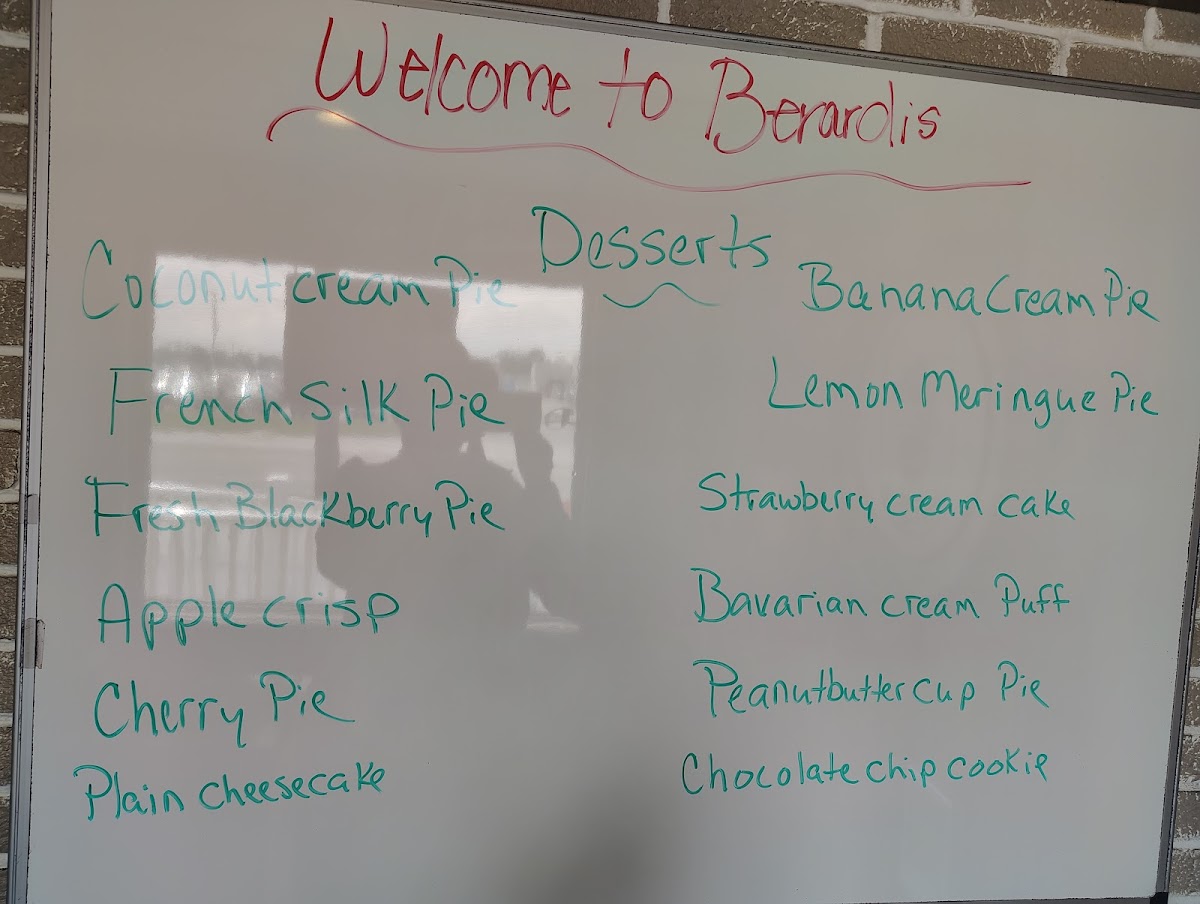 Welcome to Berardis
Desserts
Coconut cream Pie
French Silk Pie
Fresh Blackberry Pie
Apple crisp
Cherry Pie
Plain cheesecake
Banana Cream Pie
Lemon Meringue Pie
Strawberry cream cake
Bavarian cream Puff
Peanutbutter cup Pie
Chocolate chip cookie